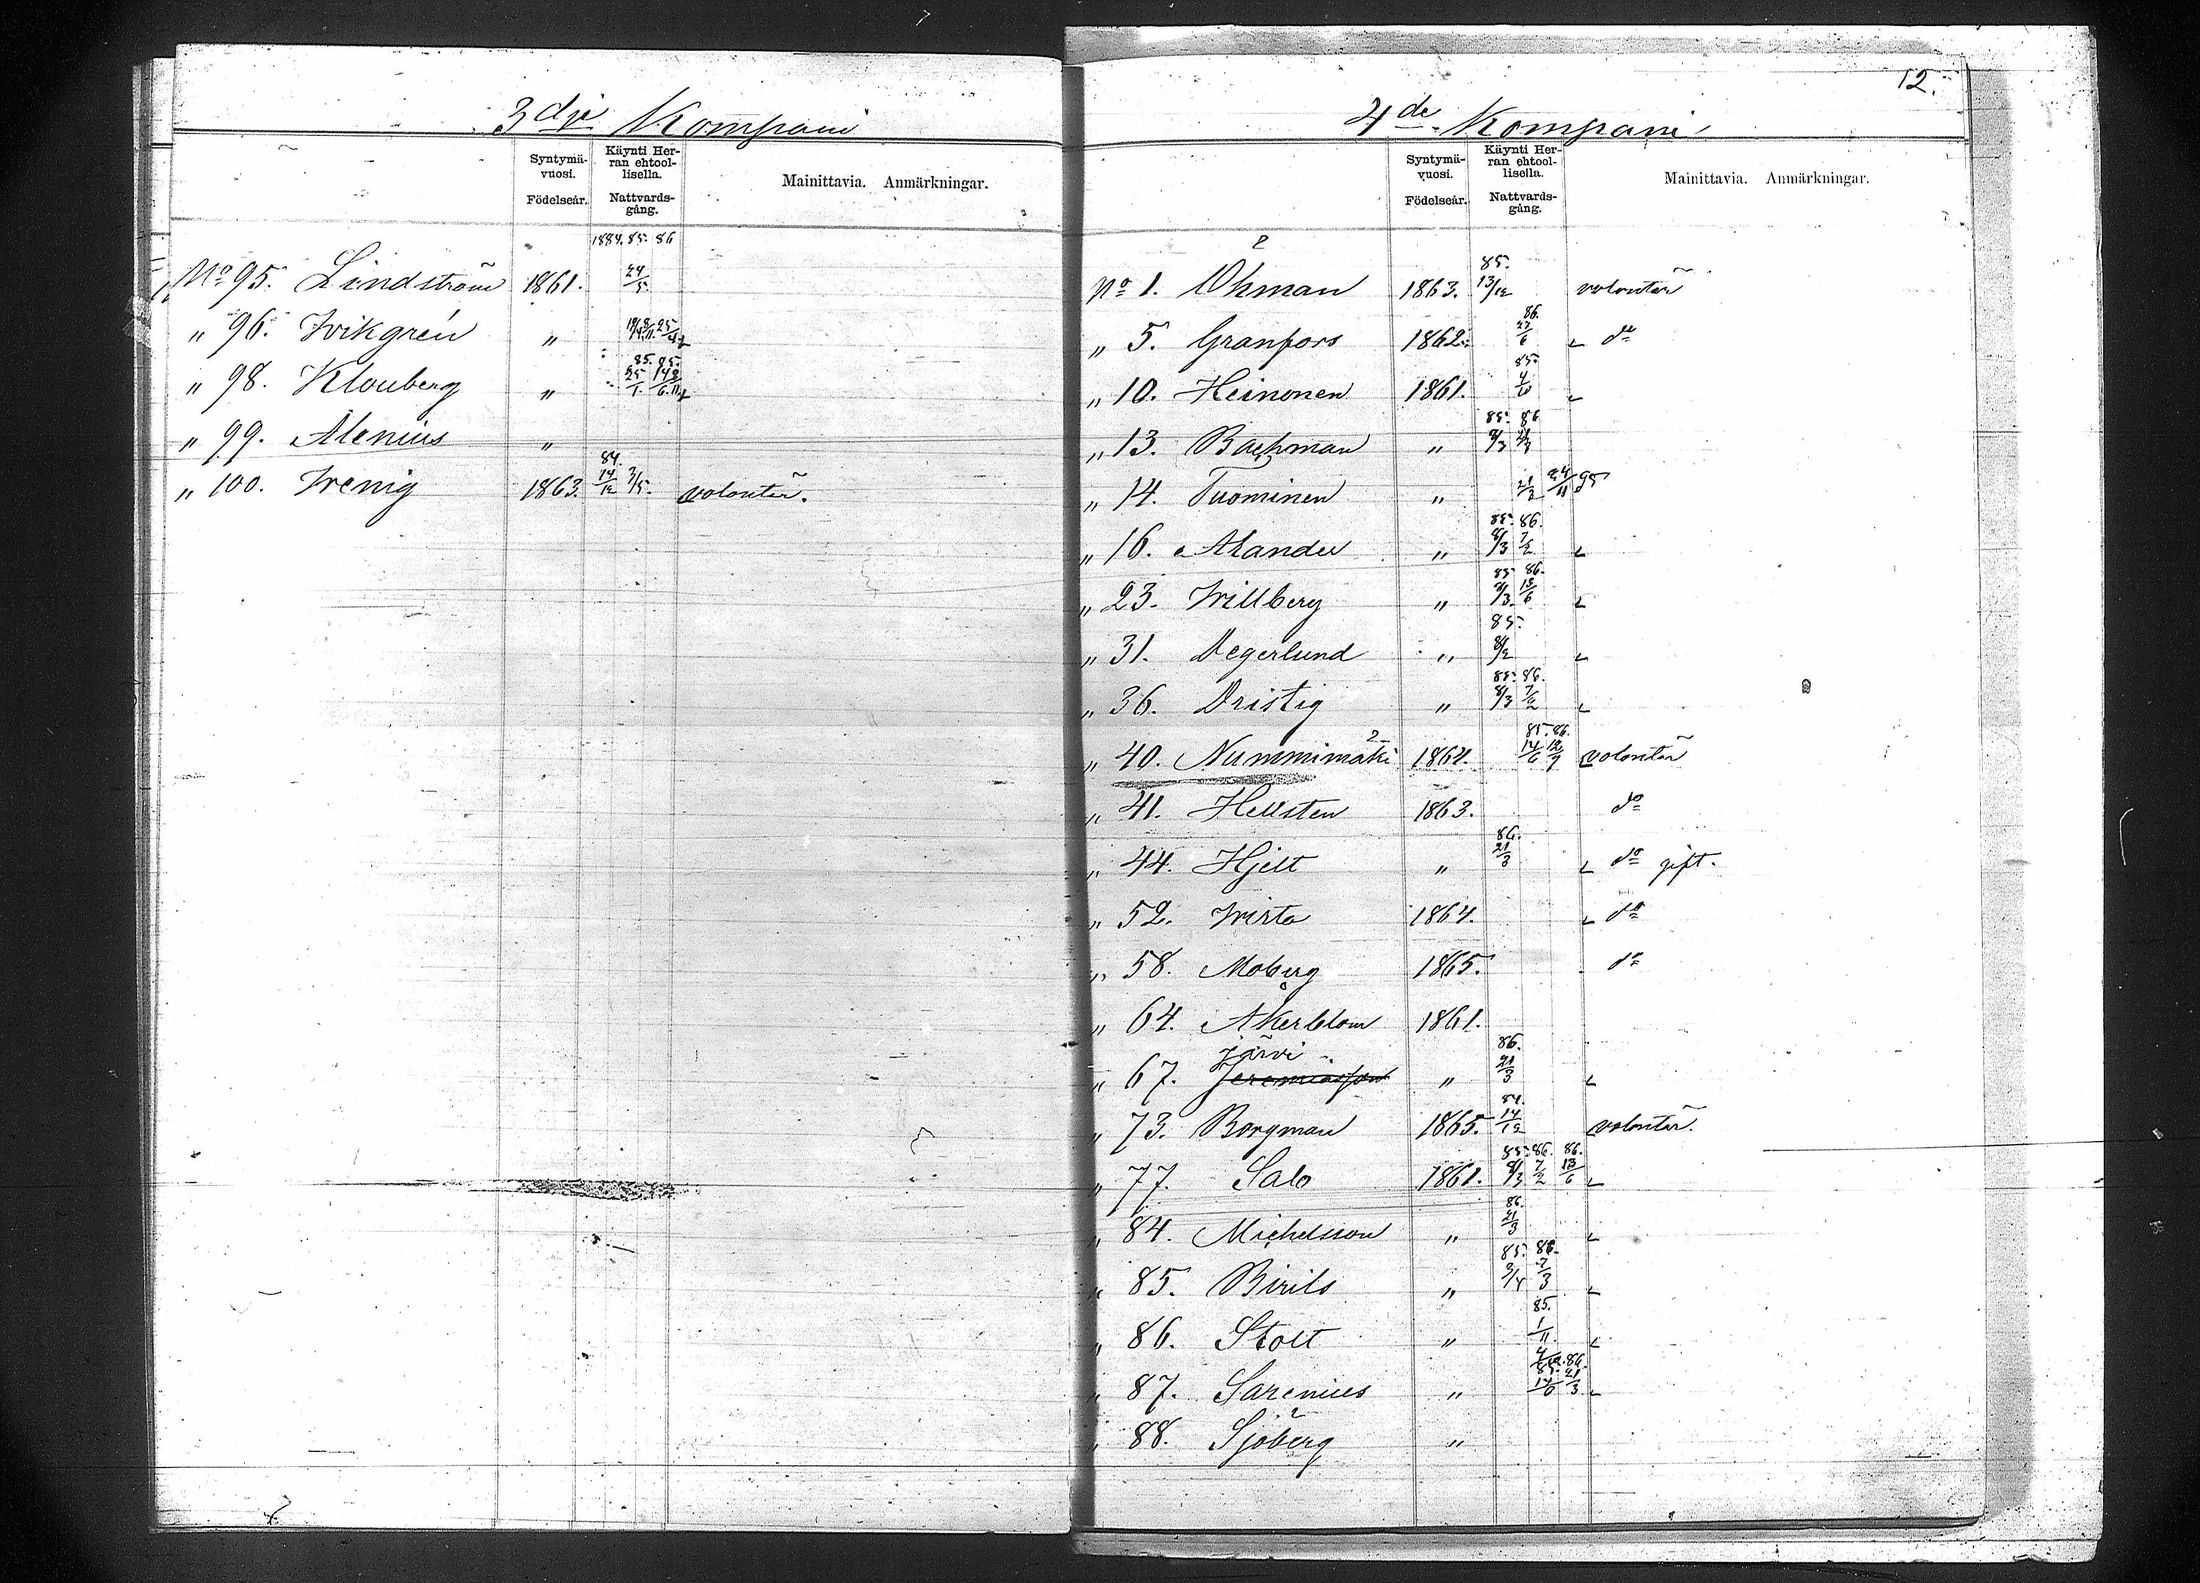 3dje Kompani
Syntymävuosi. Födelseår. Käynti Herran ehtoollisella. Nattvardsgång. Mainittavia. Anmärkningar.
1884. 85. 86
No 95. Lindström 1861. 24/5
" 96. Wikgrén "
" 98. Klouberg " 85. 85. 25/1
" 99. Alenius "
" 100. Wrenig 1863. 84. 14/12 3/5. volontär.
12.
4de Kompani
Syntymävuosi. Födelseår. Käynti Herran ehtoollisella. Nattvardsgång. Mainittavia. Anmärkningar.
No 1. Öhman 1863. 85. 13/12 volontär
" 5. Granfors 1862. 86. 27/6 do
" 10. Heinonen 1861. 85.
" 13. Bachman " 85. 86
" 14. Tuominen " 21/3 24/11 95
" 16. Alander " 85. 86. 8/3 7/2
" 23. Willberg " 85. 86. 8/3 13/6
" 31. Degerlund " 85. 8/2
" 36. Dristig " 85. 86. 8/3 7/2
" 40. Nummimäki 1864. 85. 86. 14/6 12/9 volontär
" 41. Hellsten 1863. do
" 44. Hjelt " 86. 21/3 do gift.
" 52. Wirta 1864. do
" 58. Moberg 1865. do
" 64. Åkerblom 1861.
Järvi
" 67. Jeremiasson " 86. 21/3
" 73. Borgman 1865. 84. 14/12 volontär.
" 77. Salo 1861. 85. 86. 86. 8/3 7/2 13/6
" 84. Michelsson " 86. 21/3
" 85. Birils " 85. 86. 3/4 7/3
" 86. Stolt " 85. 1/11
" 87. Sarenius " 85. 86. 14/6 21/3
" 88. Sjöberg "